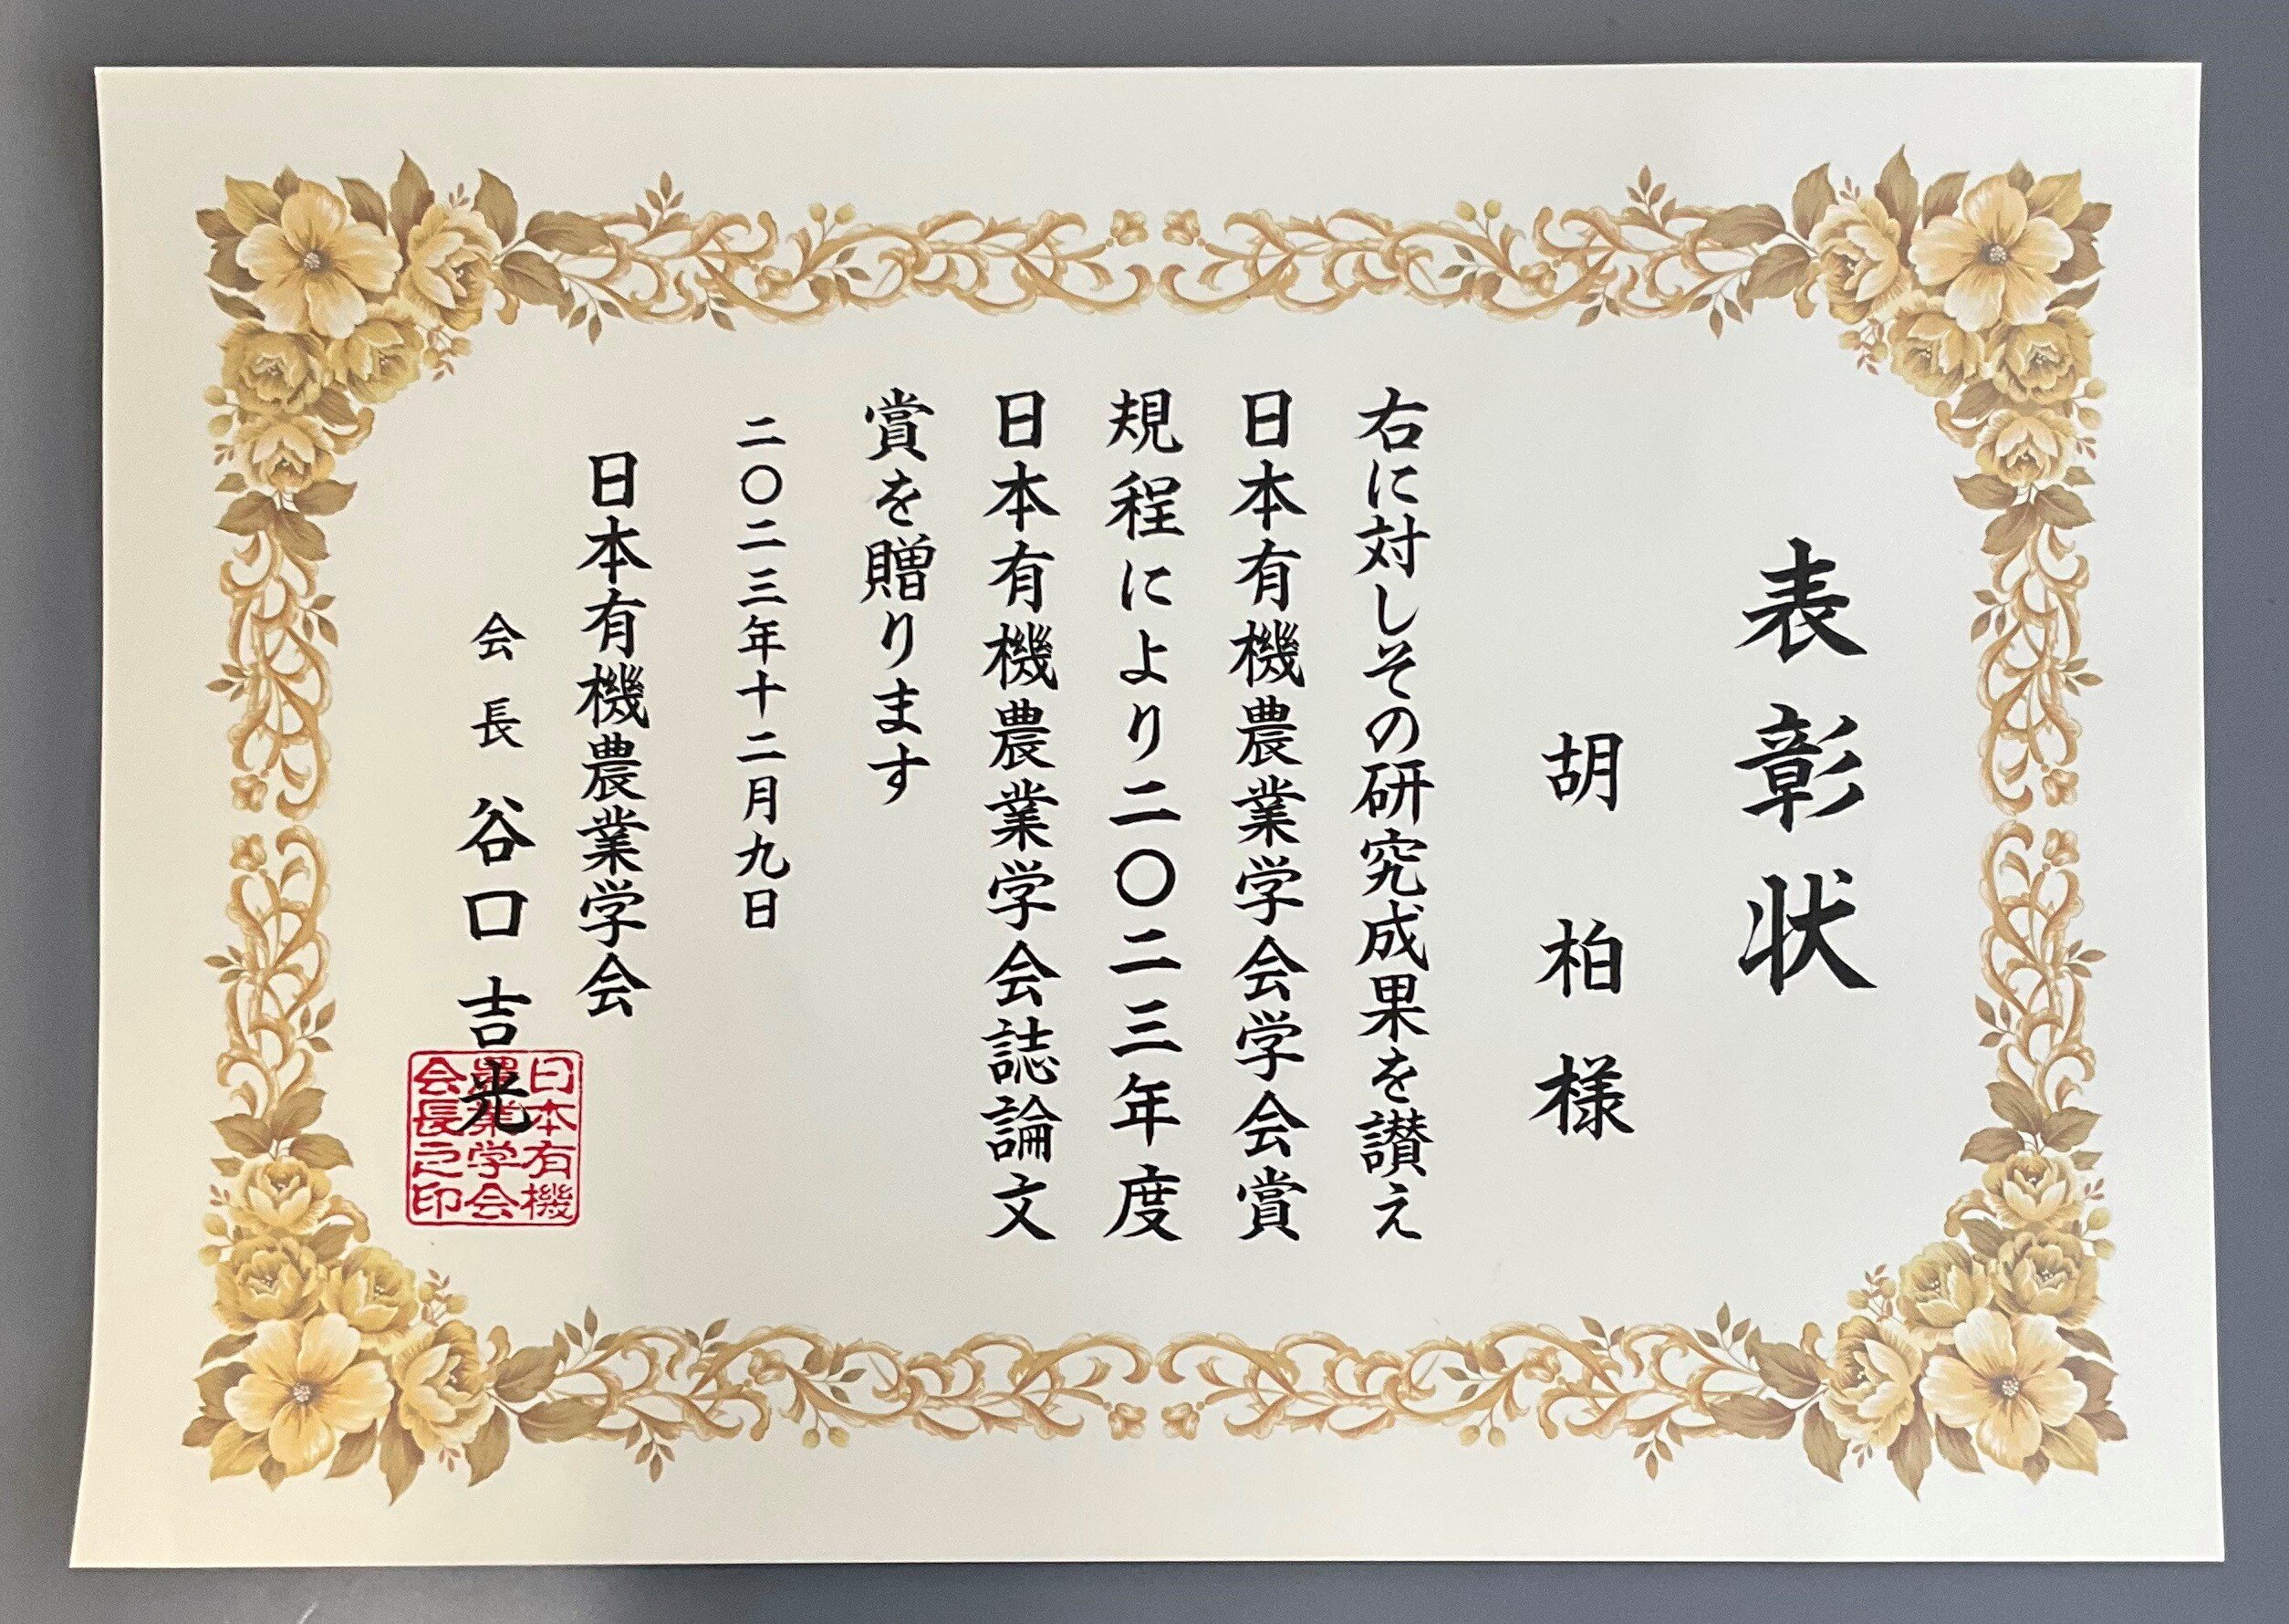 表彰状
胡 柏 様
右に対しその研究成果を讃え
日本有機農業学会学会賞
規程により二〇二三年度
日本有機農業学会誌論文
賞を贈ります
二〇二三年十二月九日
日本有機農業学会
会長 谷口吉光
日本有機
農業学会
会長之印